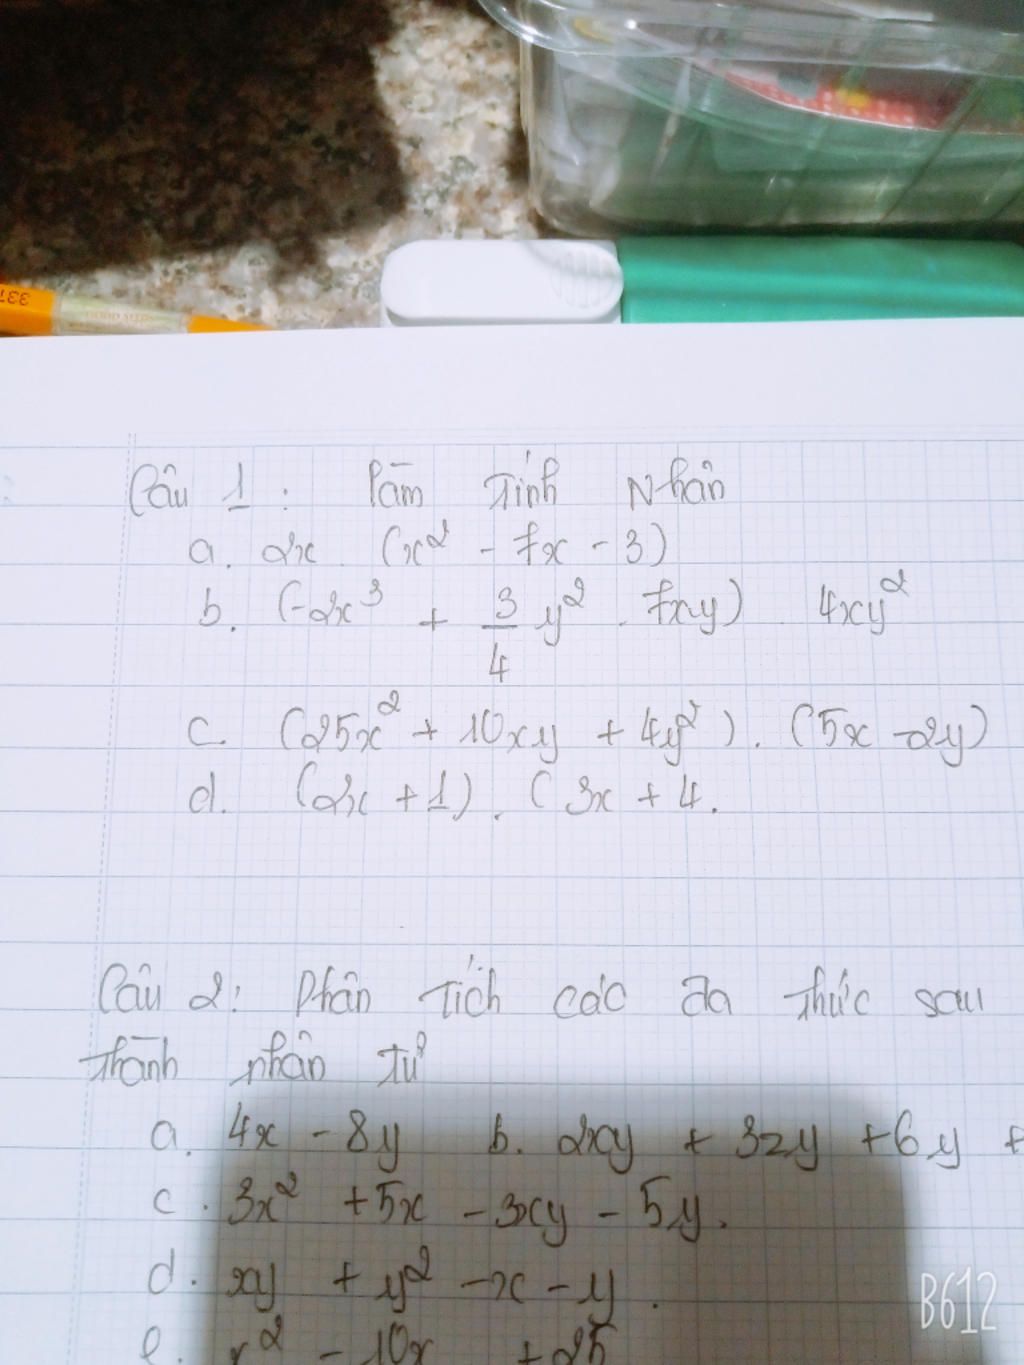 337
Câu 1 : Làm tính Nhân
a. 2x (x² - 7x - 3)
b. (-2x³ + 3/4 y² . 7xy) 4xy²
c. (25x² + 10xy + 4y²) . (5x - 2y)
d. (2x + 1) . ( 3x + 4.
Câu 2: Phân tích các đa thức sau
thành nhân tử
a. 4x - 8y b. 2xy + 3zy + 6y +
c. 3x² + 5x - 3xy - 5y.
d. xy + y² - x - y.
e. x² - 10x + 25
B612